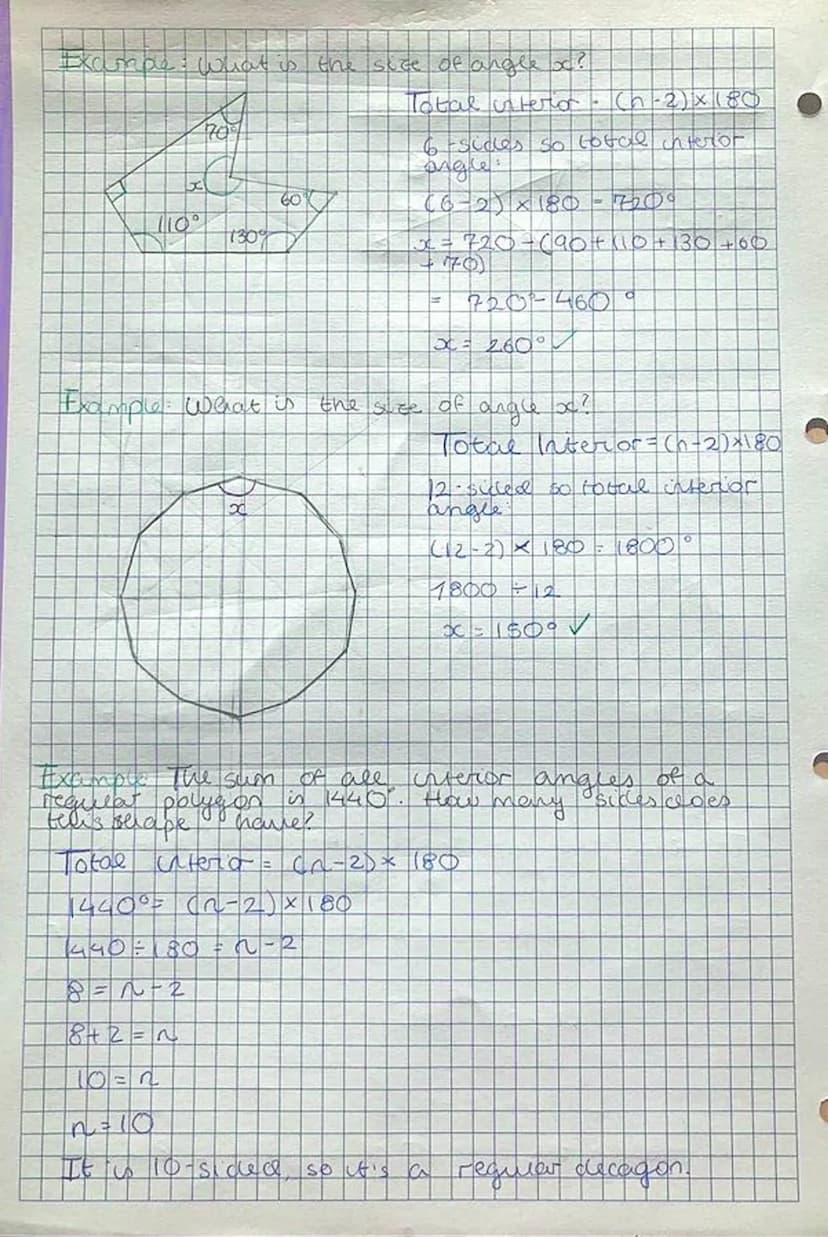 Example: What is the size of angle x?
70°
x
60°
110°
130°
Total interior = (n-2)×180
6-sides so total interior
angle:
(6-2)×180 = 720°
x = 720-(90+110+130+60
+70)
= 720°-460°
x = 260° ✓
Example: What is the size of angle x?
x
Total Interior = (n-2)×180
12-sided so total interior
angle:
(12-2)×180 = 1800°
1800 ÷ 12
x = 150° ✓
Example: The sum of all interior angles of a
regular polygon is 1440°. How many sides does
this shape have?
Total interior = (n-2)×180
1440° = (n-2)×180
1440÷180 = n-2
8 = n-2
8+2 = n
10 = n
n = 10
It is 10-sided, so it's a regular decagon.